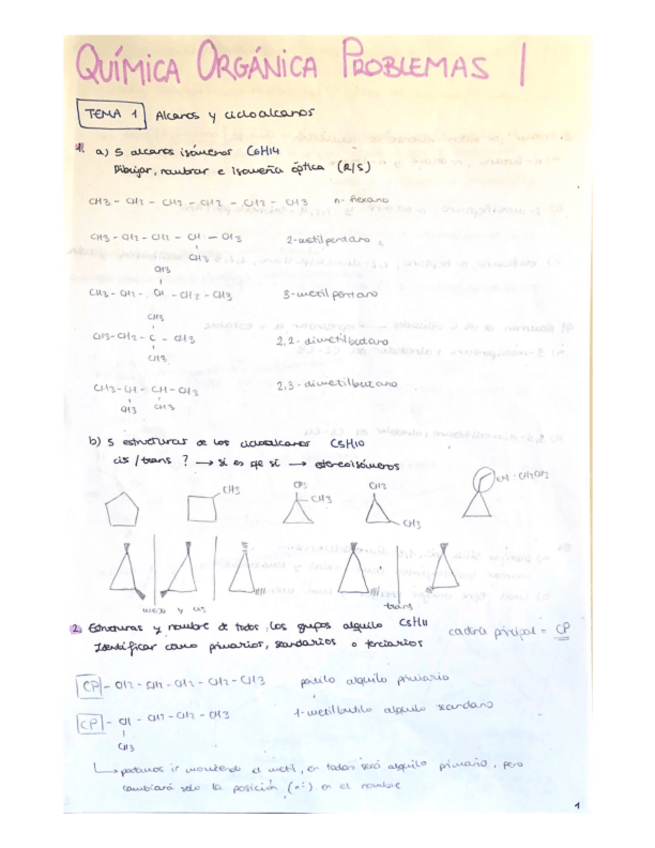 QUÍMICA ORGÁNICA PROBLEMAS 1
TEMA 1 Alcanos y cicloalcanos
1. a) 5 alcanos isómeros C6H14
Dibujar, nombrar e isomería óptica (R/S)
CH3 - CH2 - CH2 - CH2 - CH2 - CH3 n-hexano
CH3 - CH2 - CH2 - CH - CH3 2-metilpentano
CH3
CH3
CH3 - CH2 - CH - CH2 - CH3 3-metilpentano
CH3
CH3-CH2 - C - CH3 2,2-dimetilbutano
CH3
CH3-CH - CH-CH3 2,3-dimetilbutano
CH3 CH3
b) 5 estructuras de los cicloalcanos C5H10
cis/trans? → si es que sí → estereoisómeros
CH3 CH3 CH3 CH3 CH3
meso y cis trans
2. Estructuras y nombre de todos los grupos alquilo C5H11 cadena principal = CP
Identificar como primarios, secundarios o terciarios
CP - CH2 - CH2 - CH2 - CH2 - CH3 pentilo alquilo primario
CP - CH - CH2 - CH2 - CH3 1-metilbutilo alquilo secundario
CH3
podemos ir moviendo el metil, en todos será alquilo primario, pero
cambiará solo la posición (nº) en el nombre
1